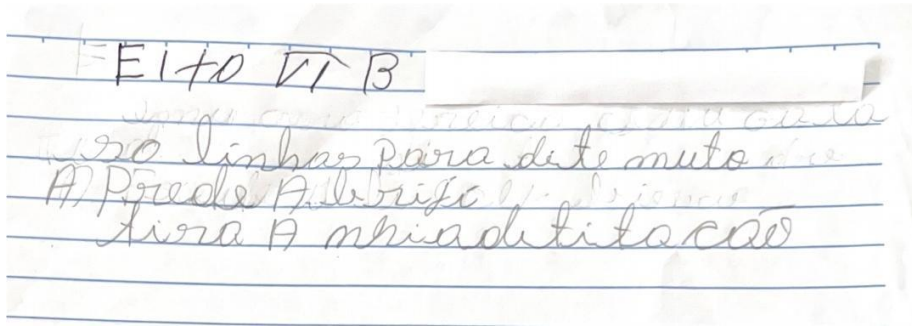 Eito VI B
uso linhas para dite muto
A) Prede A brigo
tira A mhiadetitacão